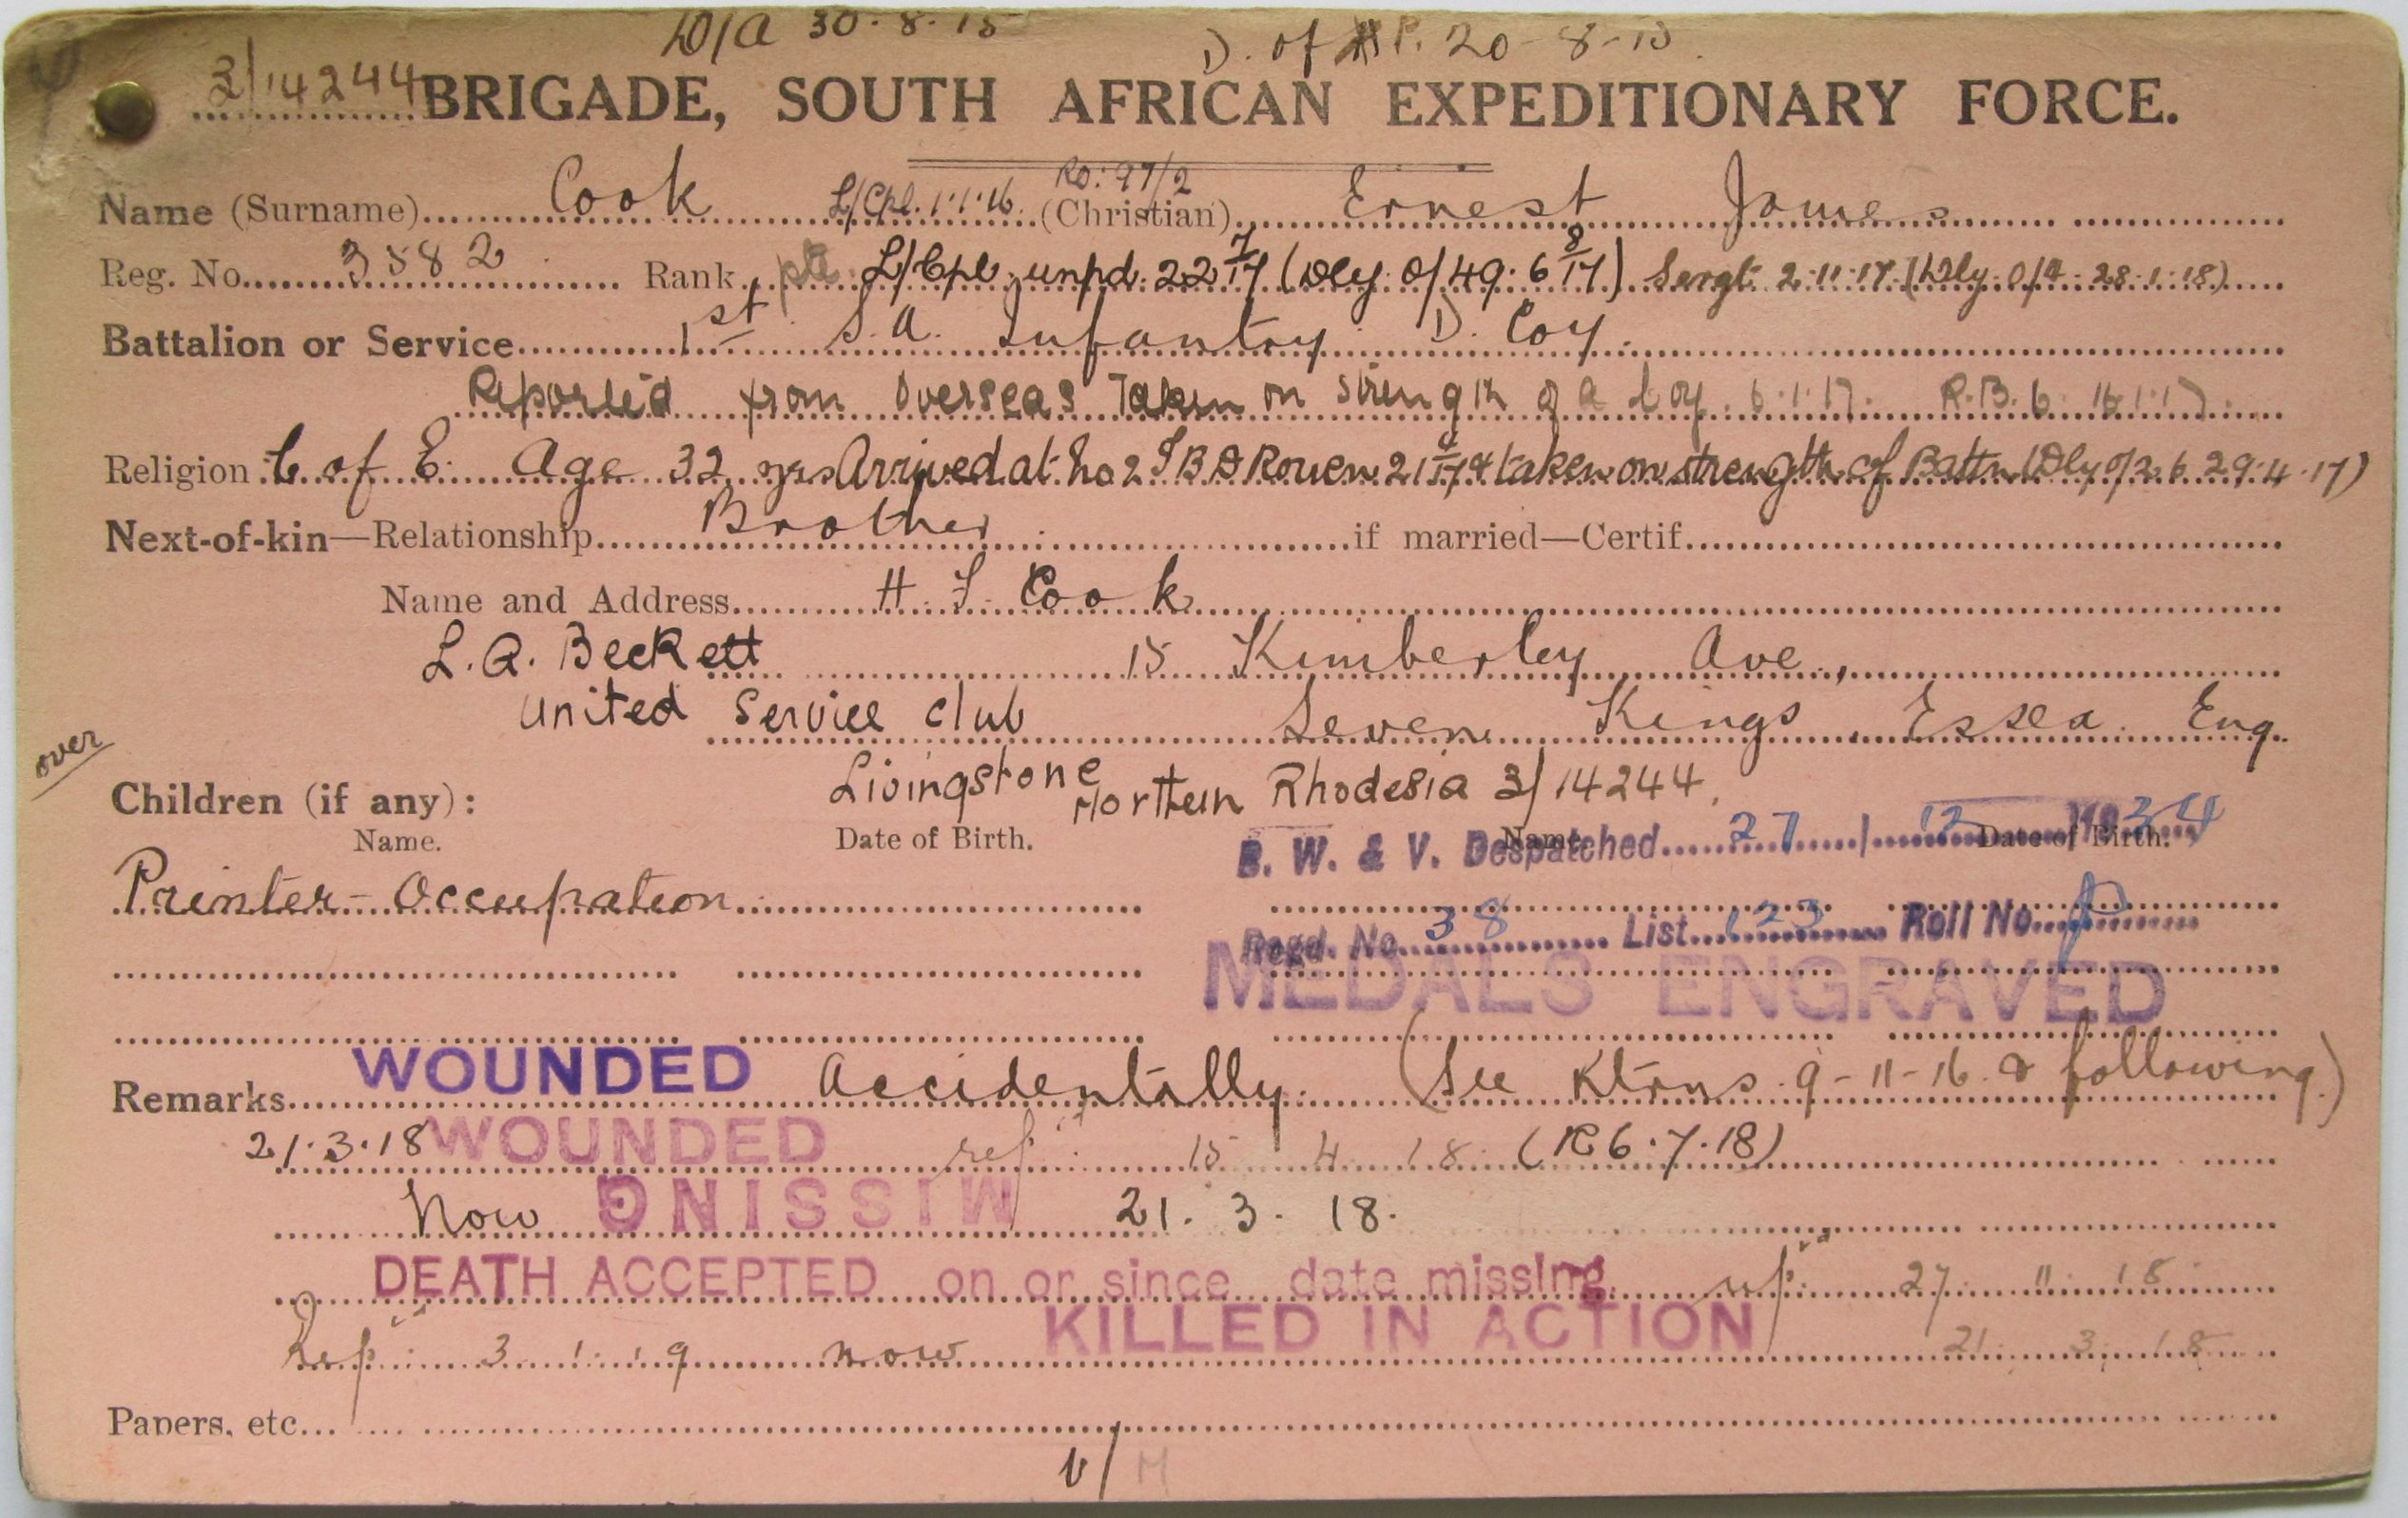 D/A 30·8·15 D. of P. 20-8-15
3/14244 BRIGADE, SOUTH AFRICAN EXPEDITIONARY FORCE.
Ro: 97/2
Name (Surname) Cook L/Cpl. 1·1·16. (Christian) Ernest James
Reg. No. 3582 Rank pte. L/Cpl. unpd. 22 7/17 (Dly. O/49. 6 8/17) Sergt. 2·11·17. (Dly. O/4. 28·1·18)
Battalion or Service 1st S.A. Infantry D. Coy.
Reported from Overseas Taken on Strength of a Coy. 6·1·17. R.B. 6 16·1·17.
Religion C. of E. Age 32 yrs Arrived at No 2 I B D Rouen 21 4/17 & taken on strength of Battn (Dly O/26. 29·4·17)
Next-of-kin—Relationship Brother if married—Certif.
Name and Address H. F. Cook
L. A. Beckett 15 Kimberley Ave.,
United Service Club Seven Kings, Essex. Eng.
over
Livingstone Northern Rhodesia 3/14244.
Children (if any):
Name. Date of Birth. Name. Date of Birth.
B. W. & V. Despatched 27/12/1934
Printer - Occupation
Regd. No. 38 List 123 Roll No. P
MEDALS ENGRAVED
Remarks WOUNDED Accidentally. (See Ktrns. 9-11-16 & following.)
21·3·18 WOUNDED rep. 15 4 18. (R 6·7·18)
Now MISSING 21. 3. 18.
DEATH ACCEPTED on or since date missing. rep. 27 11 18
Rep. 3. 1. 19 now KILLED IN ACTION 21 3 18
Papers, etc.